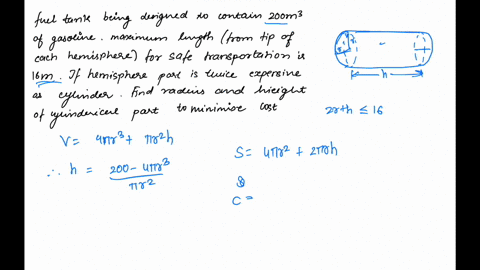 fuel tank being designed to contain 200m³
of gasoline. maximum length (from tip of
each hemisphere) for safe transportation is
16m. If hemisphere part is twice expensive
as cylinder. Find radius and hieight
of cylinderical part to minimise cost
h
2r+h ≤ 16
V= 4πr³ + πr²h
∴ h = 200 - 4πr³
πr²
S= 4πr² + 2πrh
C =